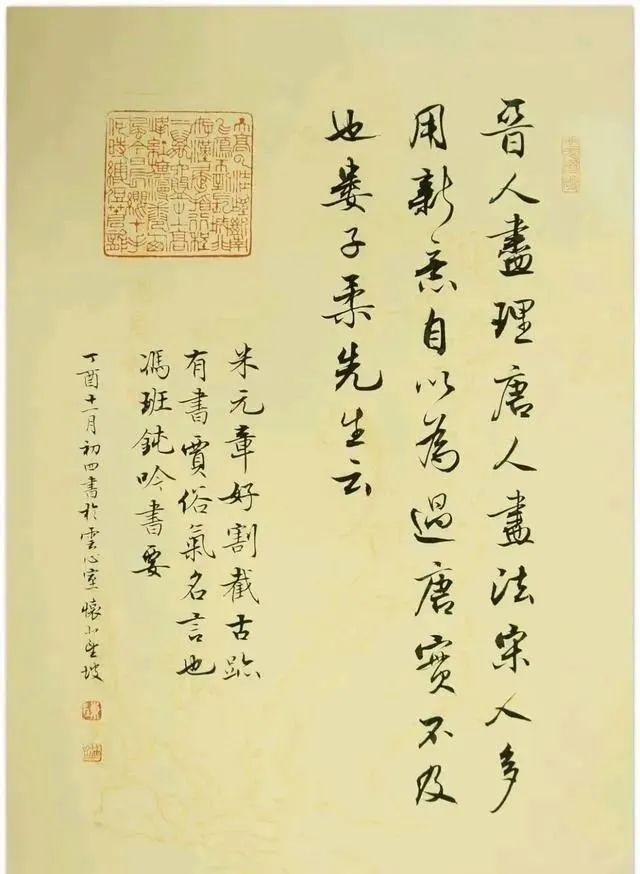 晋人盡理唐人盡法宋人多
用新意自以為過唐實不及
也婁子柔先生云
米元章好割截古跡
有書賈俗氣名言也
馮班鈍吟書要
丁酉十一月初四書於雲心室懷坡